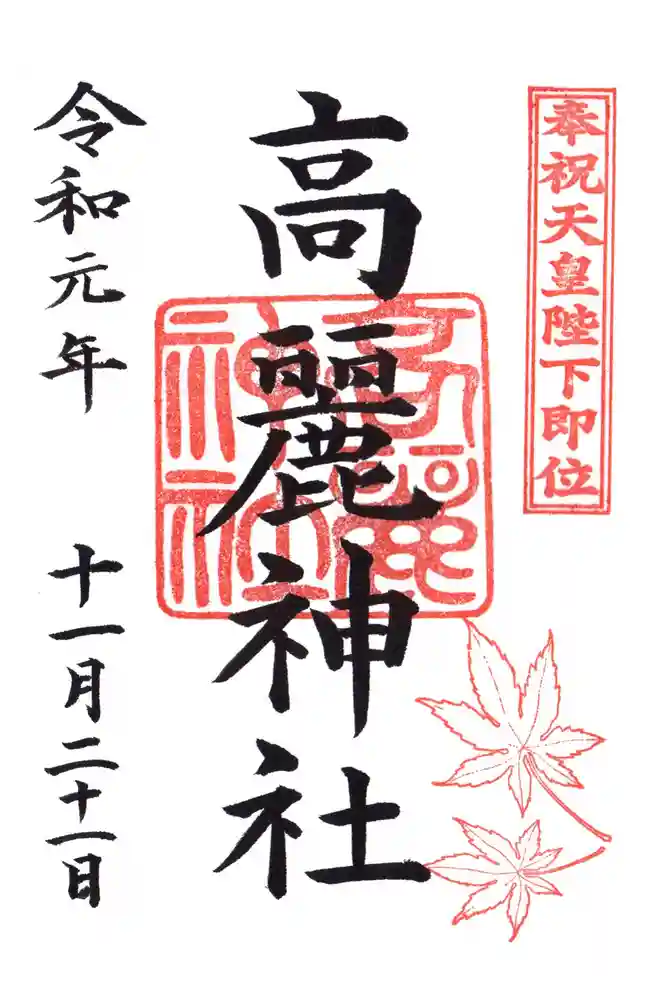 奉祝天皇陛下即位
高麗神社
令和元年 十一月二十一日